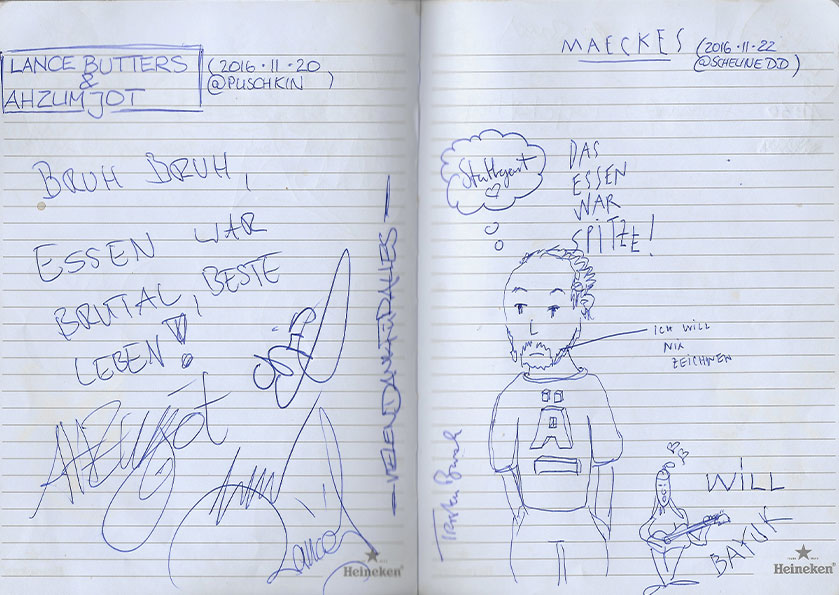 LANCE BUTTERS
&
AHZUMJOT
(2016-11-20
@PUSCHKIN )
BRUH BRUH,
ESSEN WAR
BRUTAL, BESTE
LEBEN!
VIELEN DANK FÜR ALLES
Ahzumjot
Heineken
MAECKES (2016-11-22
@SCHEUNE DD)
Stuttgart
DAS
ESSEN
WAR
SPITZE!
ICH WILL
NIX
ZEICHNEN
WILL
Heineken